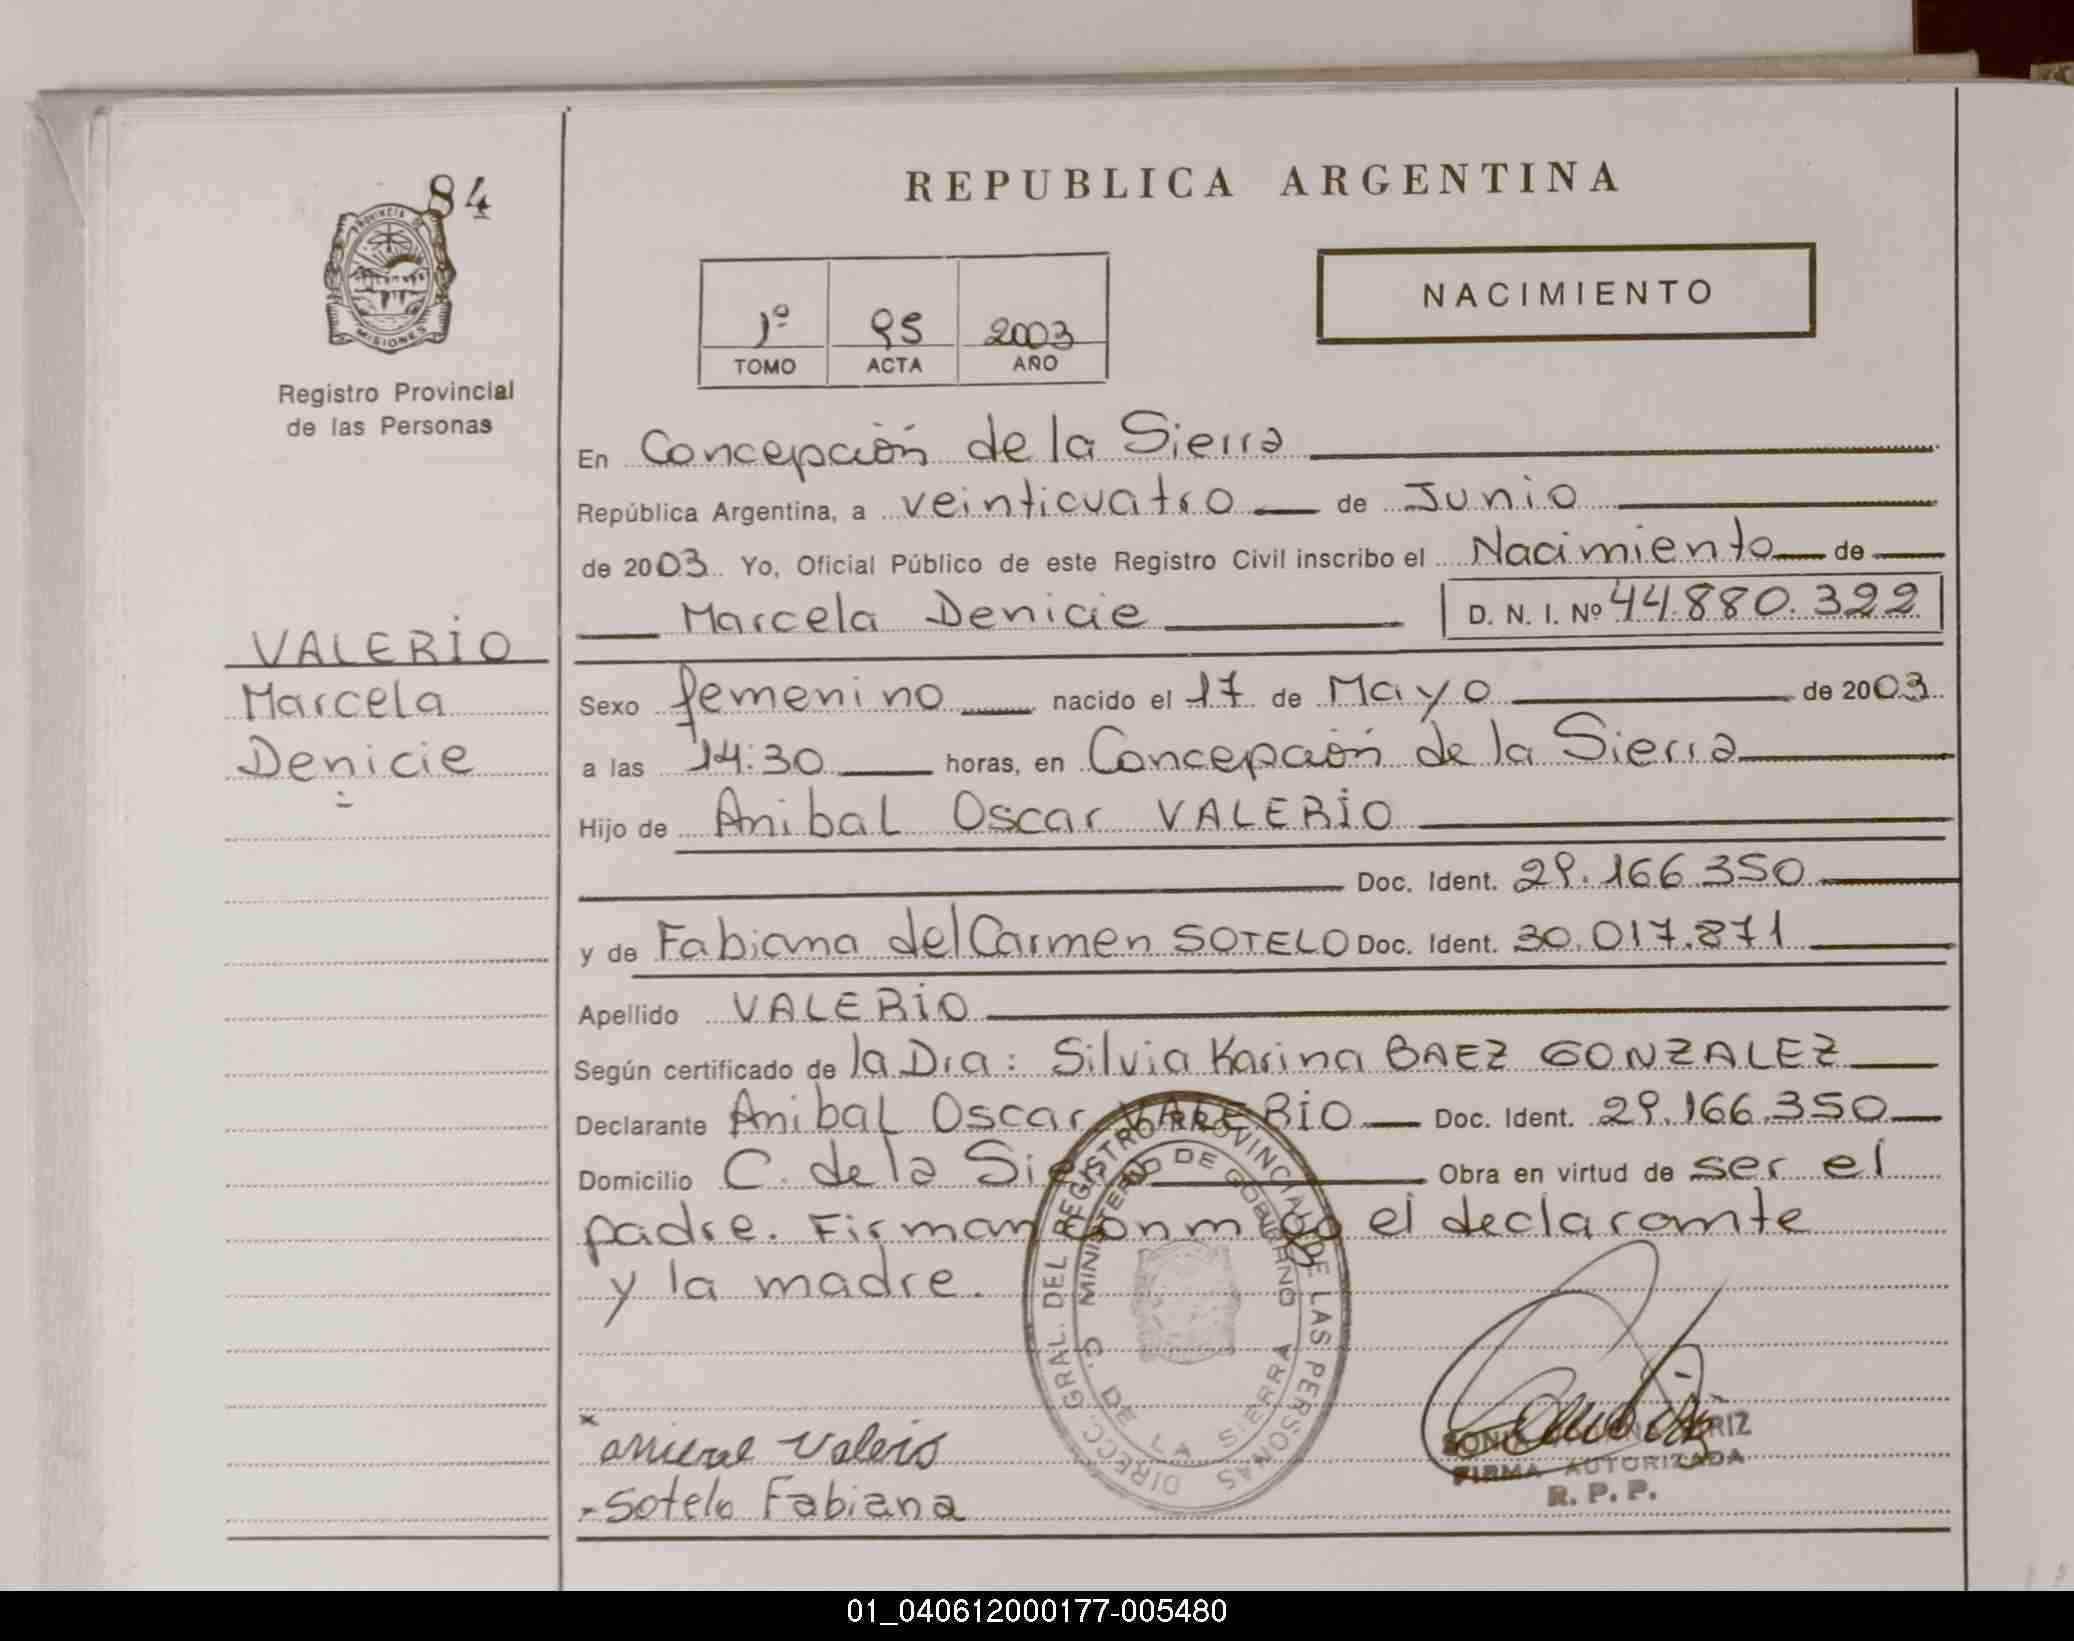 84
PROVINCIA DE
MISIONES
Registro Provincial
de las Personas
VALERIO
Marcela
Denicie
REPUBLICA ARGENTINA
1º 95 2003
TOMO ACTA AÑO
NACIMIENTO
En Concepción de la Sierra
República Argentina, a veinticuatro de Junio
de 2003. Yo, Oficial Público de este Registro Civil inscribo el Nacimiento de
Marcela Denicie D. N. I. Nº 44.880.322
Sexo femenino nacido el 17 de Mayo de 2003
a las 14:30 horas, en Concepción de la Sierra
Hijo de Anibal Oscar VALERIO
Doc. Ident. 29.166.350
y de Fabiana del Carmen SOTELO Doc. Ident. 30.017.871
Apellido VALERIO
Según certificado de la Dra: Silvia Karina BAEZ GONZALEZ
Declarante Anibal Oscar VALERIO Doc. Ident. 29.166.350
Domicilio C. de la Sierra Obra en virtud de ser el
padre. Firman conmigo el declarante
y la madre.
DIRECC. GRAL. DEL REGISTRO PROVINCIAL DE LAS PERSONAS
MINISTERIO DE GOBIERNO
C. DE LA SIERRA
x
Valerio
- Sotelo Fabiana
SONIA
FIRMA AUTORIZADA
R. P. P.
01_040612000177-005480